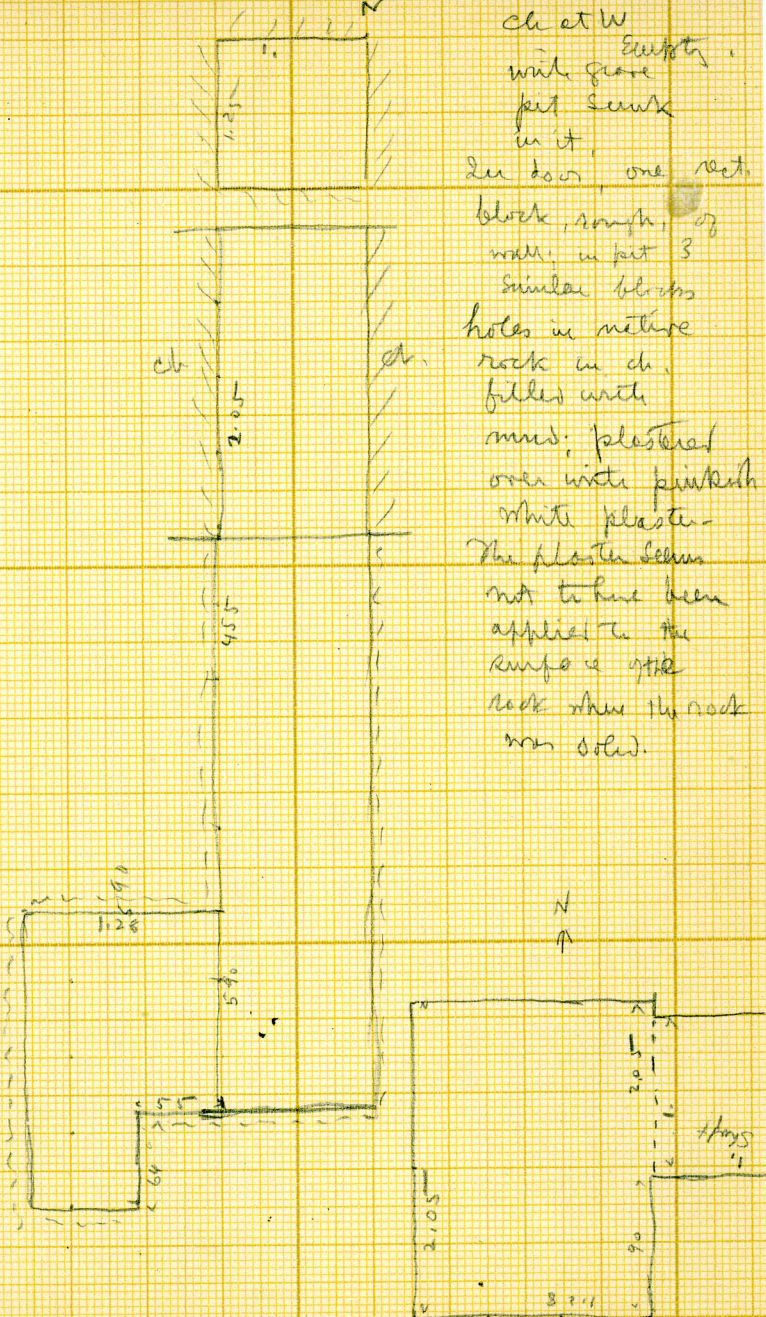 N
1.
1.25
ch at W
Empty.
with grave
pit sunk
in it,
In door, one rect.
block, rough, of
wall; in pit 3
similar blocks
holes in native
rock in ch.
filled with
mud; plastered
over with pinkish
white plaster-
The plaster seems
not to have been
applied to the
surface of the
rock where the rock
was solid.
ch
ch.
2.05
455
90
1.26
590
55
64
N
2.05
1.
Shaft
1.
2.05
90